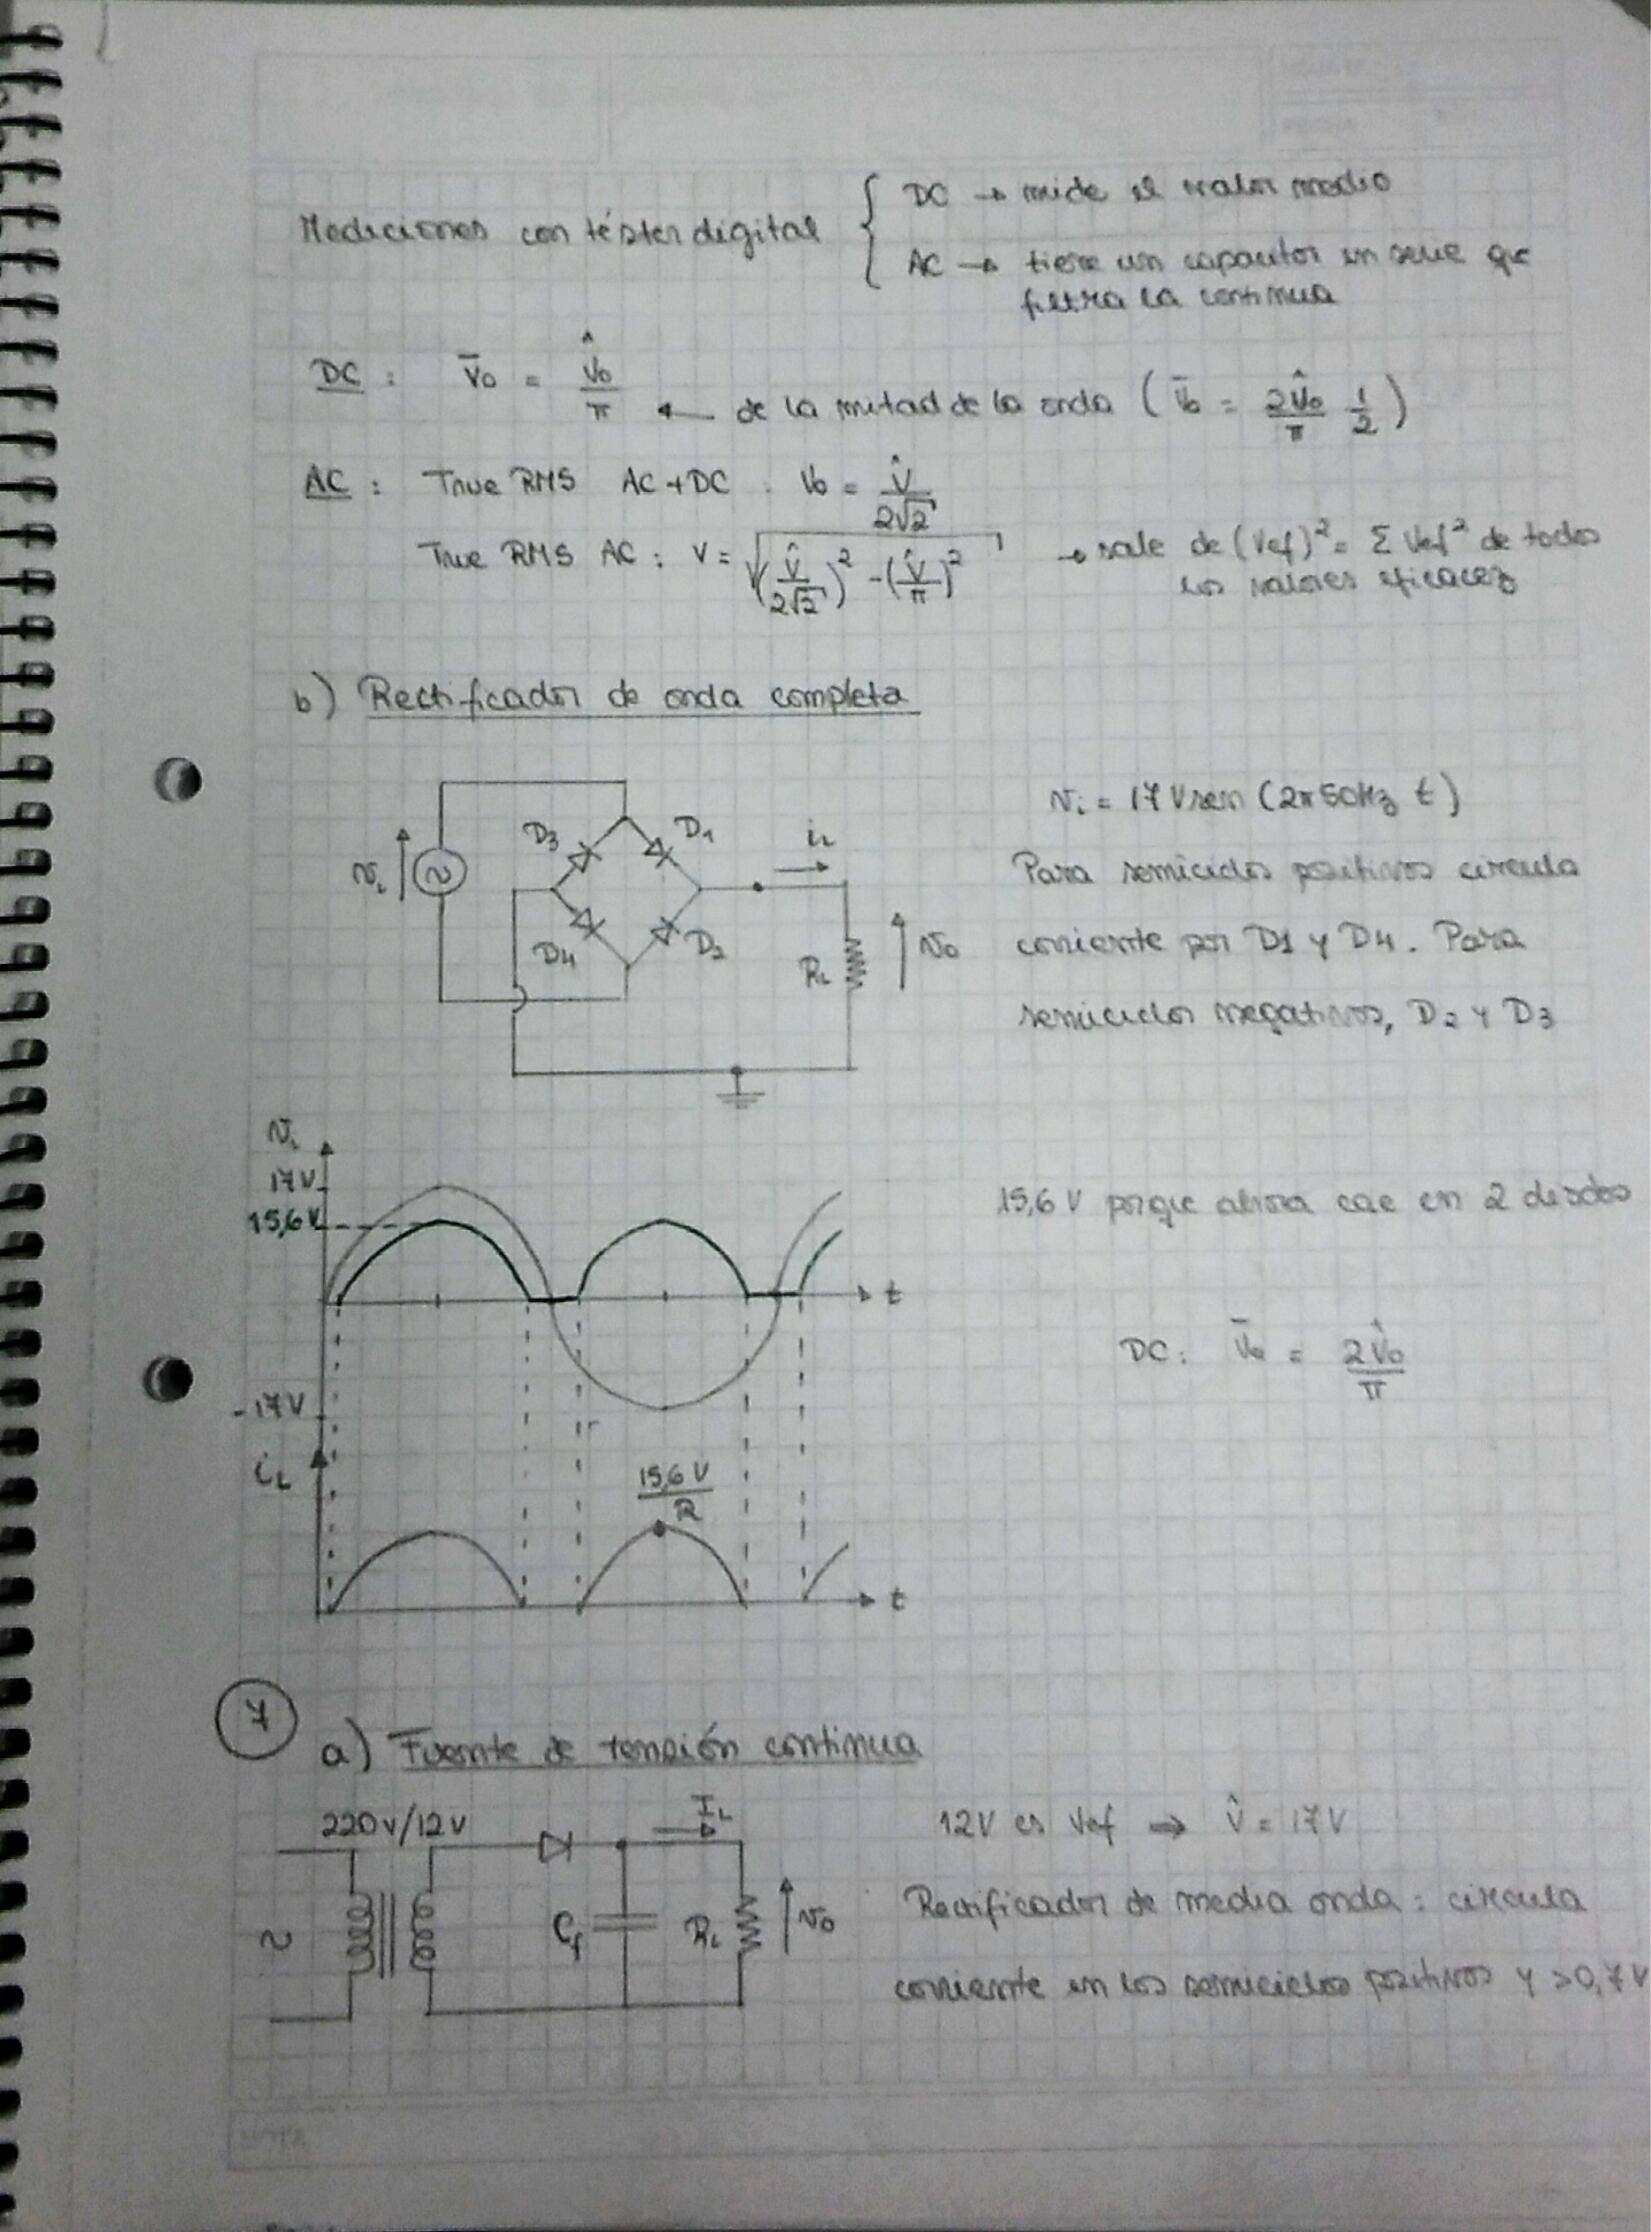 Mediciones con téster digital { DC → mide el valor medio
AC → tiene un capacitor en serie que
filtra la continua
DC : V̄o = V̂o/π ← de la mitad de la onda ( V̄o = 2V̂o/π 1/2 )
AC : True RMS AC+DC : Vo = V̂/2√2
True RMS AC : V = √((V̂/2√2)² - (V̂/π)²) → sale de (Vef)² = Σ Vef² de todos
los valores eficaces
b) Rectificador de onda completa
vi = 17 V sen (2π 50Hz t)
Para semiciclos positivos circula
corriente por D1 y D4. Para
semiciclos negativos, D2 y D3
vi
D3
D1
iL
D4
D2
RL
vo
vi
17V
15,6V
t
-17V
15,6 V porque ahora cae en 2 diodos
DC: V̄o = 2V̂o/π
iL
15,6 V/R
t
7
a) Fuente de tensión continua
220v/12v
IL
~
Cf
RL
vo
12V es Vef ⇒ V̂ = 17V
Rectificador de media onda : circula
corriente en los semiciclos positivos y >0,7V
NOTA